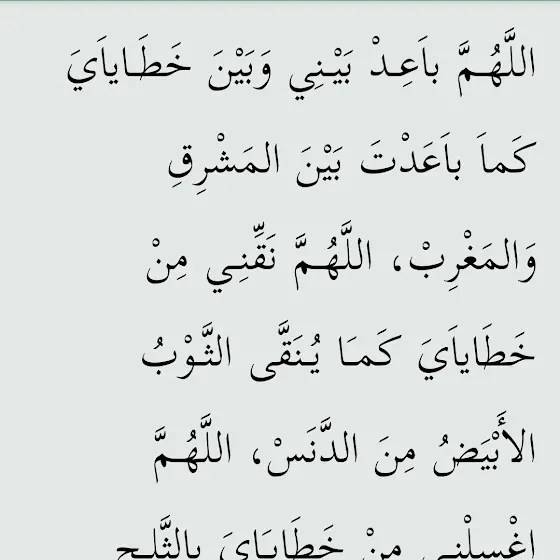 اللَّهُـمَّ باَعِـدْ بَيْـنِي وَبَيْنَ خَطَـاياَيَ
كَماَ باَعَدْتَ بَيْنَ المَشْرِقِ
وَالمَغْرِبْ، اللَّهُـمَّ نَقِّنِـي مِنْ
خَطَاياَيَ كَمـَا يُـنَقَّى الثَّـوْبُ
الأَبْيَضُ مِنَ الدَّنَسْ، اللَّهُـمَّ
اغْسِلْنِـي مِنْ خَطَايَـايَ بِالثَّلـجِ